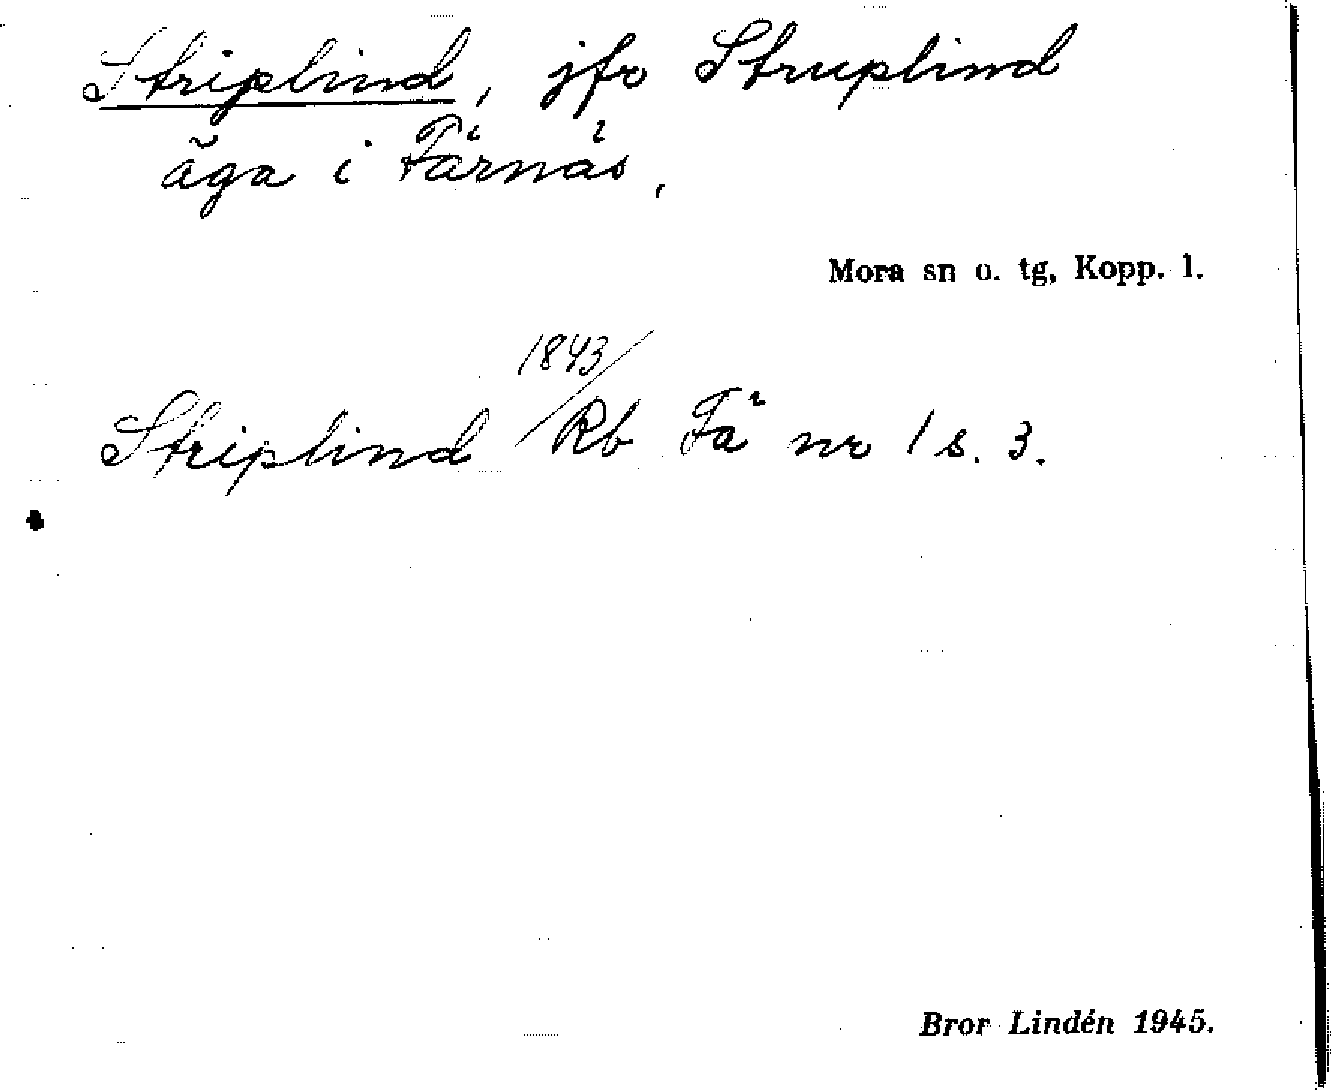 Striplind, jfr Struplind
äga i Färnäs,
Mora sn o. tg, Kopp. l.
1843/
Striplind Rb Fä nr 1 s. 3.
Bror Lindén 1945.